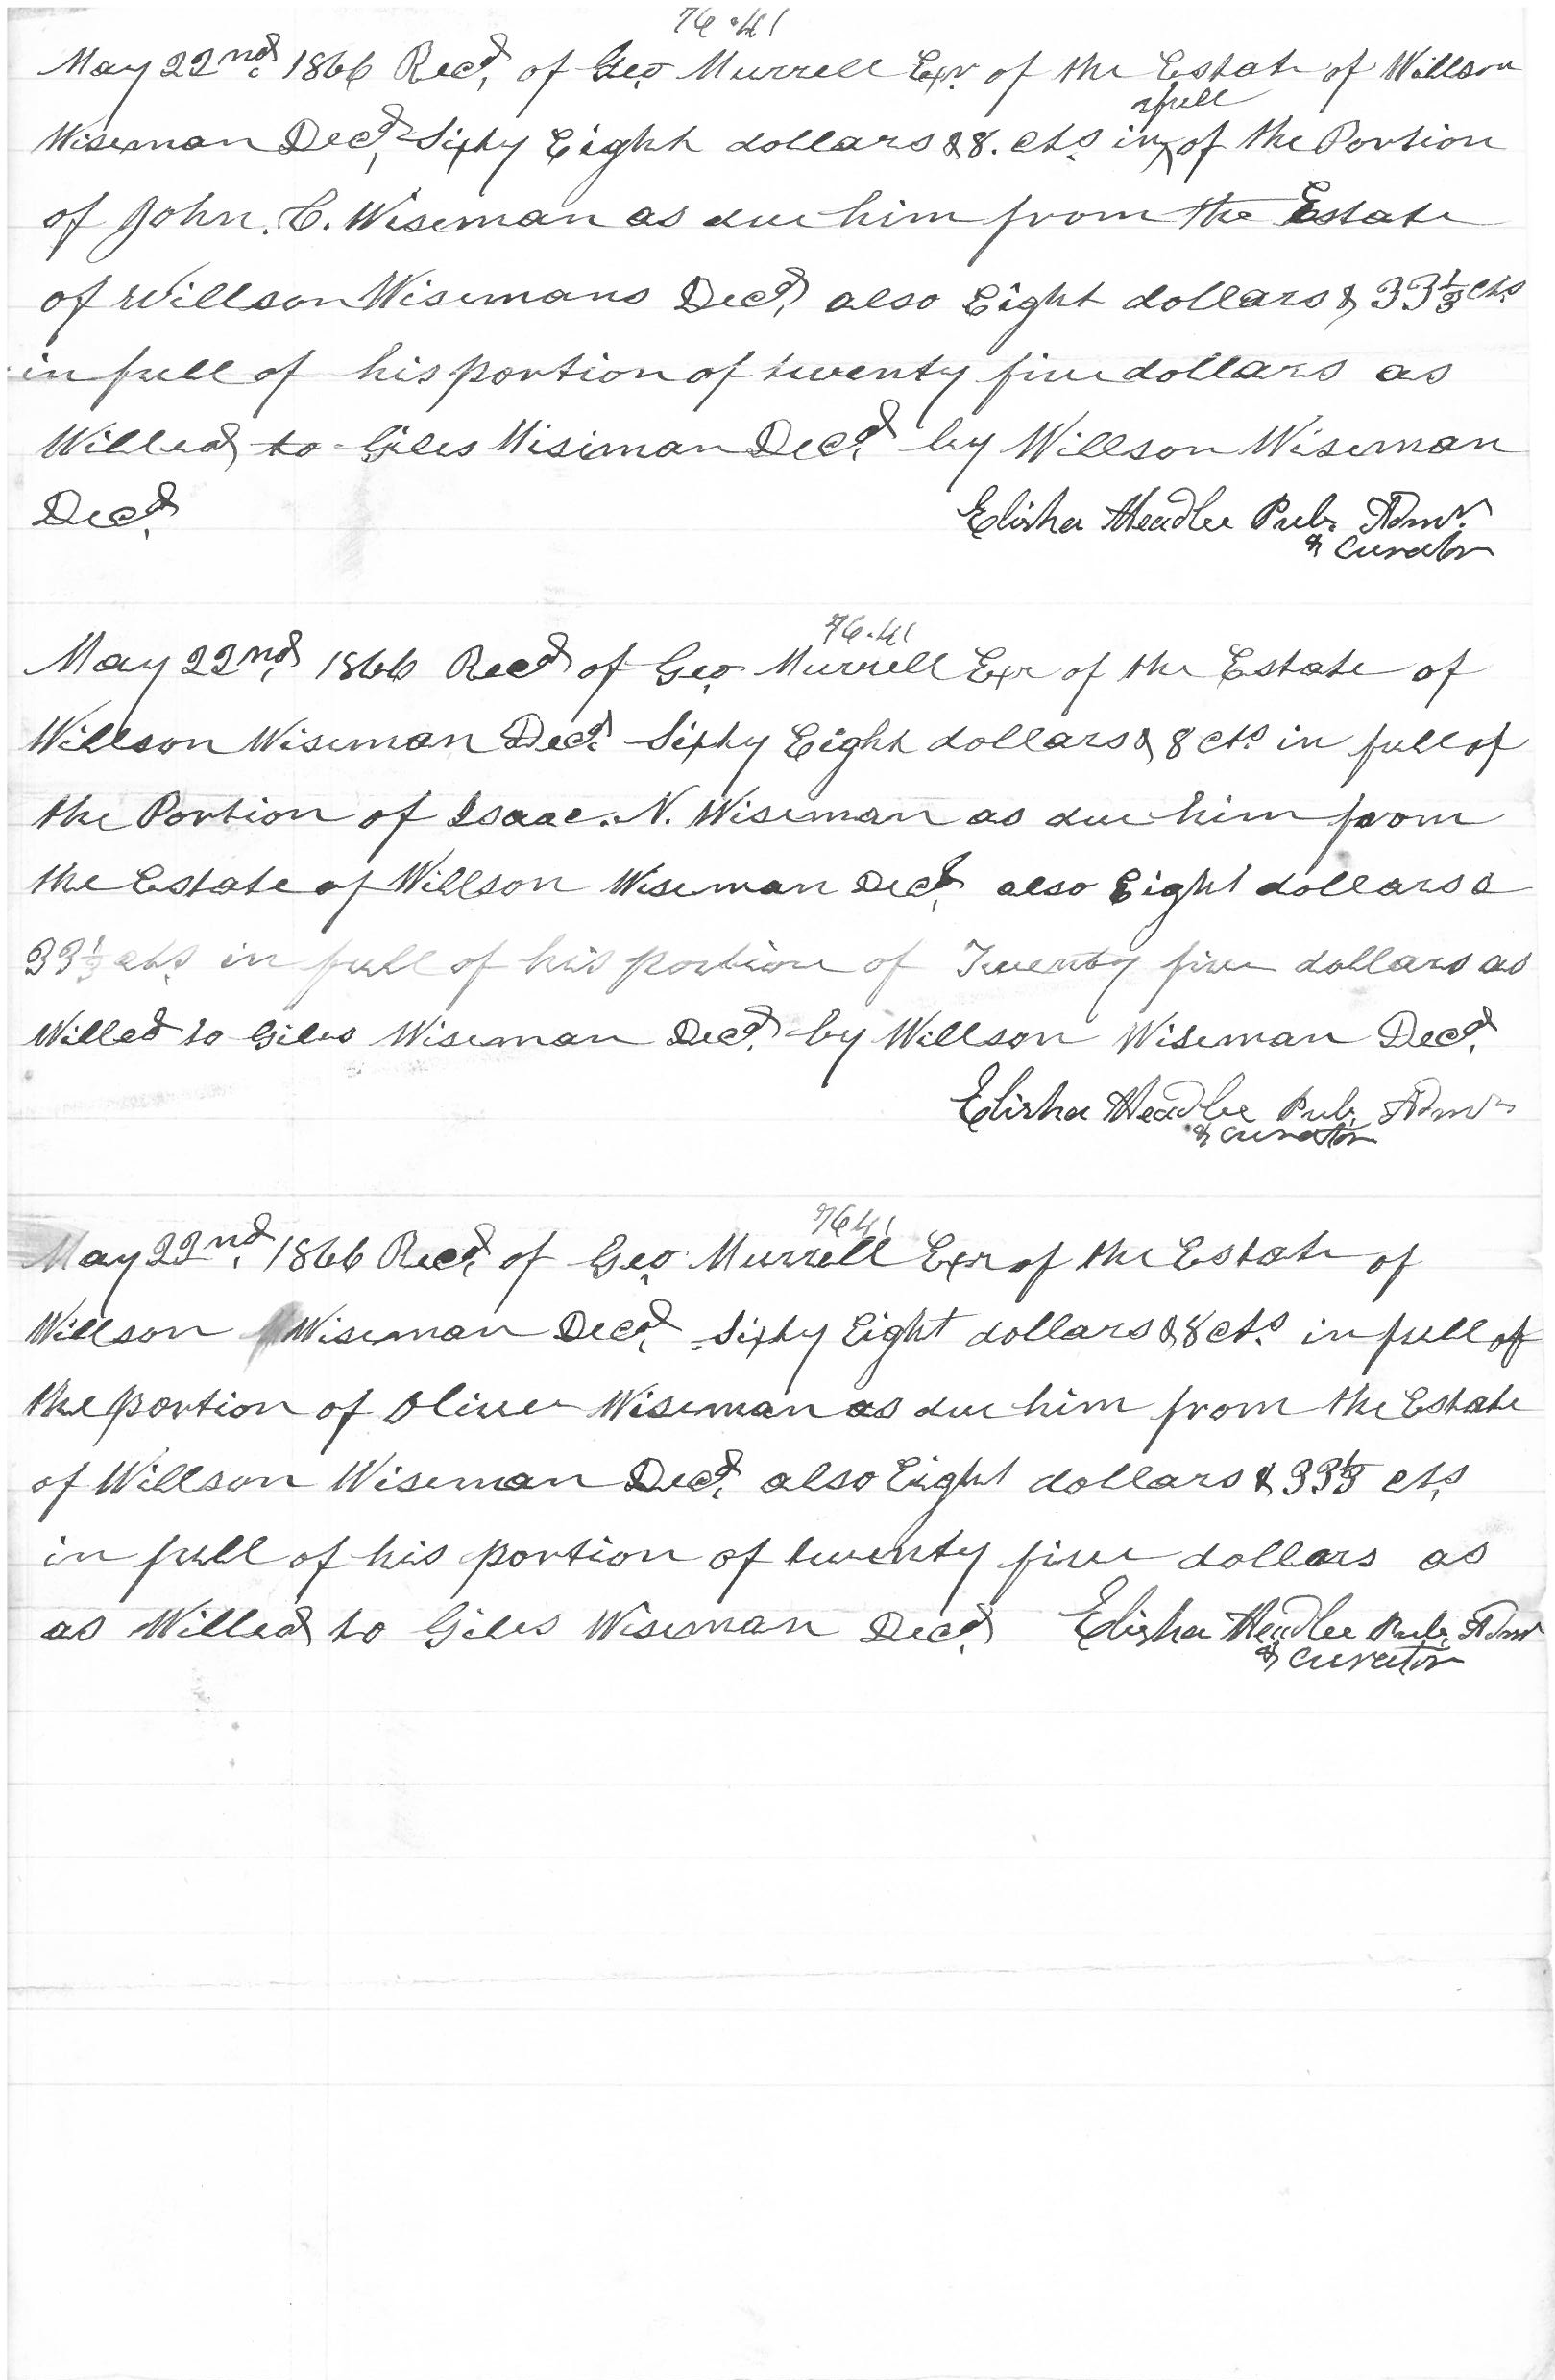 76.41
May 22nd. 1866 Recd, of Geo. Murrell Exr. of the Estate of Willson
full
Wiseman Decd, Sixty Eight dollars & 8. cts. in of the Portion
of John. C. Wiseman as due him from the Estate
of Willson Wisemans Decd, also Eight dollars & 33 1/3 cts.
in full of his portion of twenty five dollars as
Willed to Giles Wiseman Decd. by Willson Wiseman
Decd. Elisha Headlee Pub. Admr.
& Curator
76.41
May 22nd, 1866 Recd of Geo. Murrell Exr of the Estate of
Willson Wiseman Decd. Sixty Eight dollars & 8 cts. in full of
the Portion of Isaac. N. Wiseman as due him from
the Estate of Willson Wiseman Decd, also Eight dollars &
33 1/3 cts. in full of his portion of Twenty five dollars as
Willed to Giles Wiseman Decd. by Willson Wiseman Decd.
Elisha Headlee Pub. Admr
& Curator
7641
May 22nd. 1866 Recd, of Geo. Murrell Exr of the Estate of
Willson Wiseman Decd, Sixty Eight dollars & 8 cts. in full of
the portion of Oliver Wiseman as due him from the Estate
of Willson Wiseman Decd, also Eight dollars & 33 1/3 cts,
in full of his portion of twenty five dollars as
as Willed to Giles Wiseman Decd. Elisha Headlee Pub. Admr
& Curator